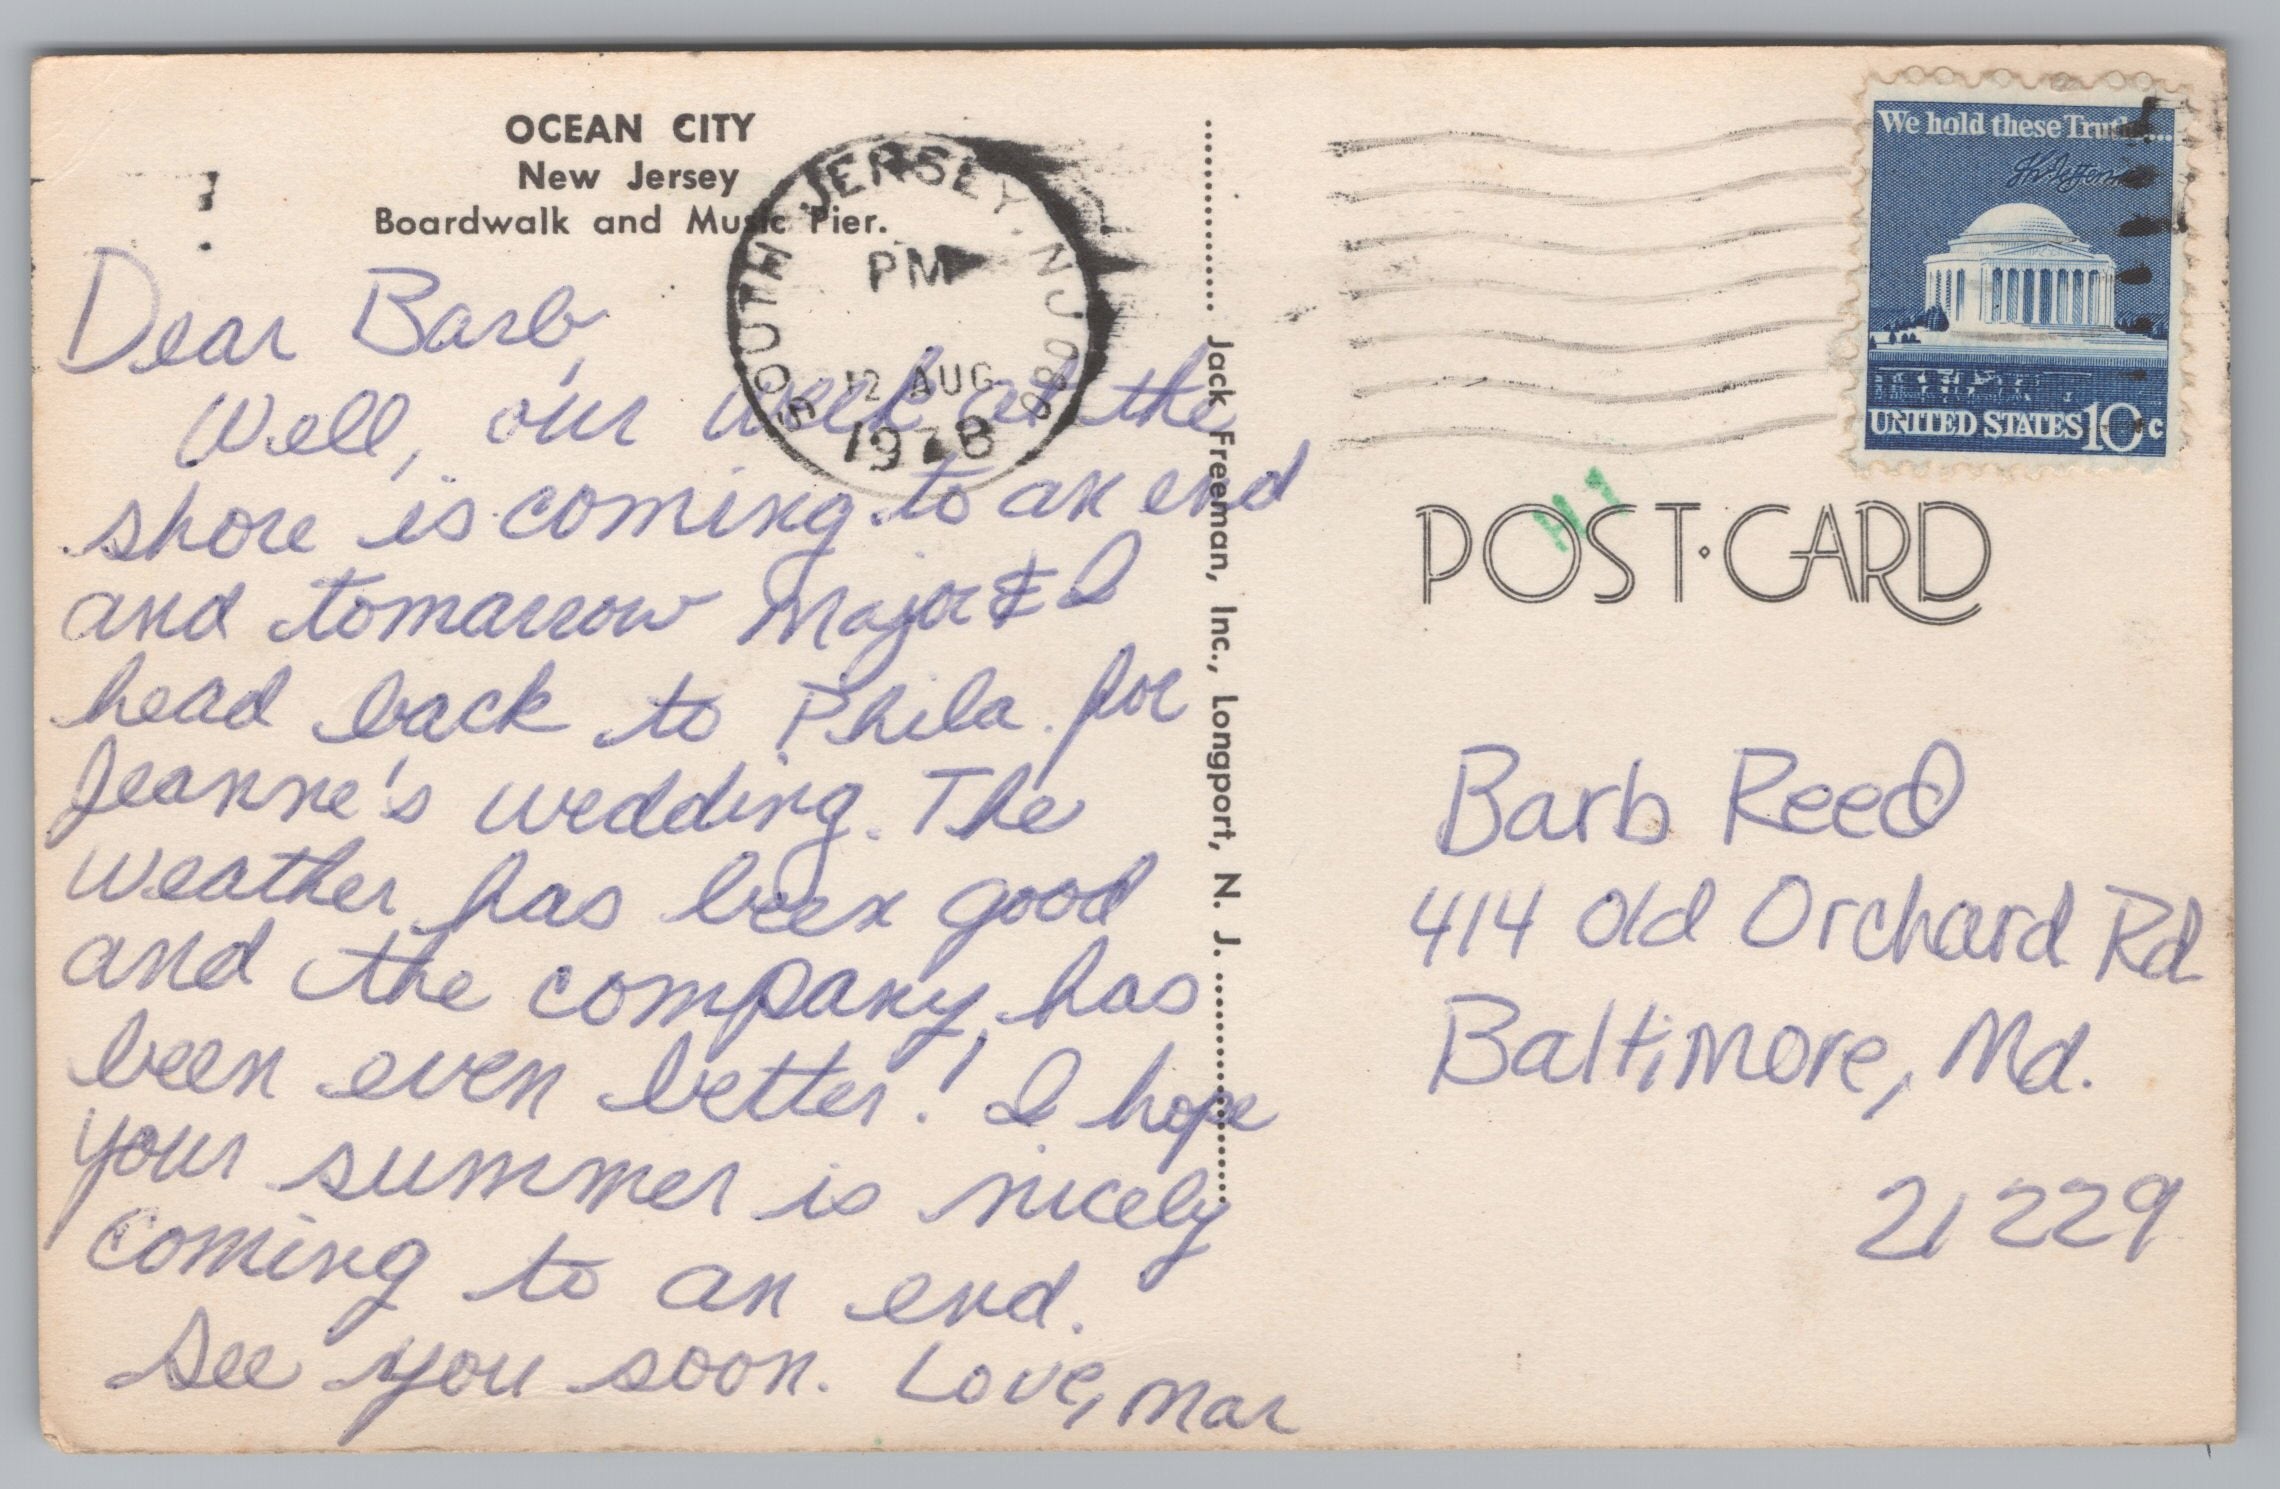 OCEAN CITY
New Jersey
Boardwalk and Music Pier.
Dear Barb,
Well, our week at the
shore is coming to an end
and tomarrow Major & I
head back to Phila. for
Jeanne's wedding. The
weather has been good
and the company has
been even better! I hope
your summer is nicely
coming to an end.
See you soon. Love, Mar
SOUTH JERSEY, NJ 080
PM
12 AUG
1978
Jack Freeman, Inc., Longport, N. J.
We hold these Truths...
Th Jefferson
UNITED STATES 10c
POST·CARD
Barb Reed
414 Old Orchard Rd
Baltimore, Md.
21229